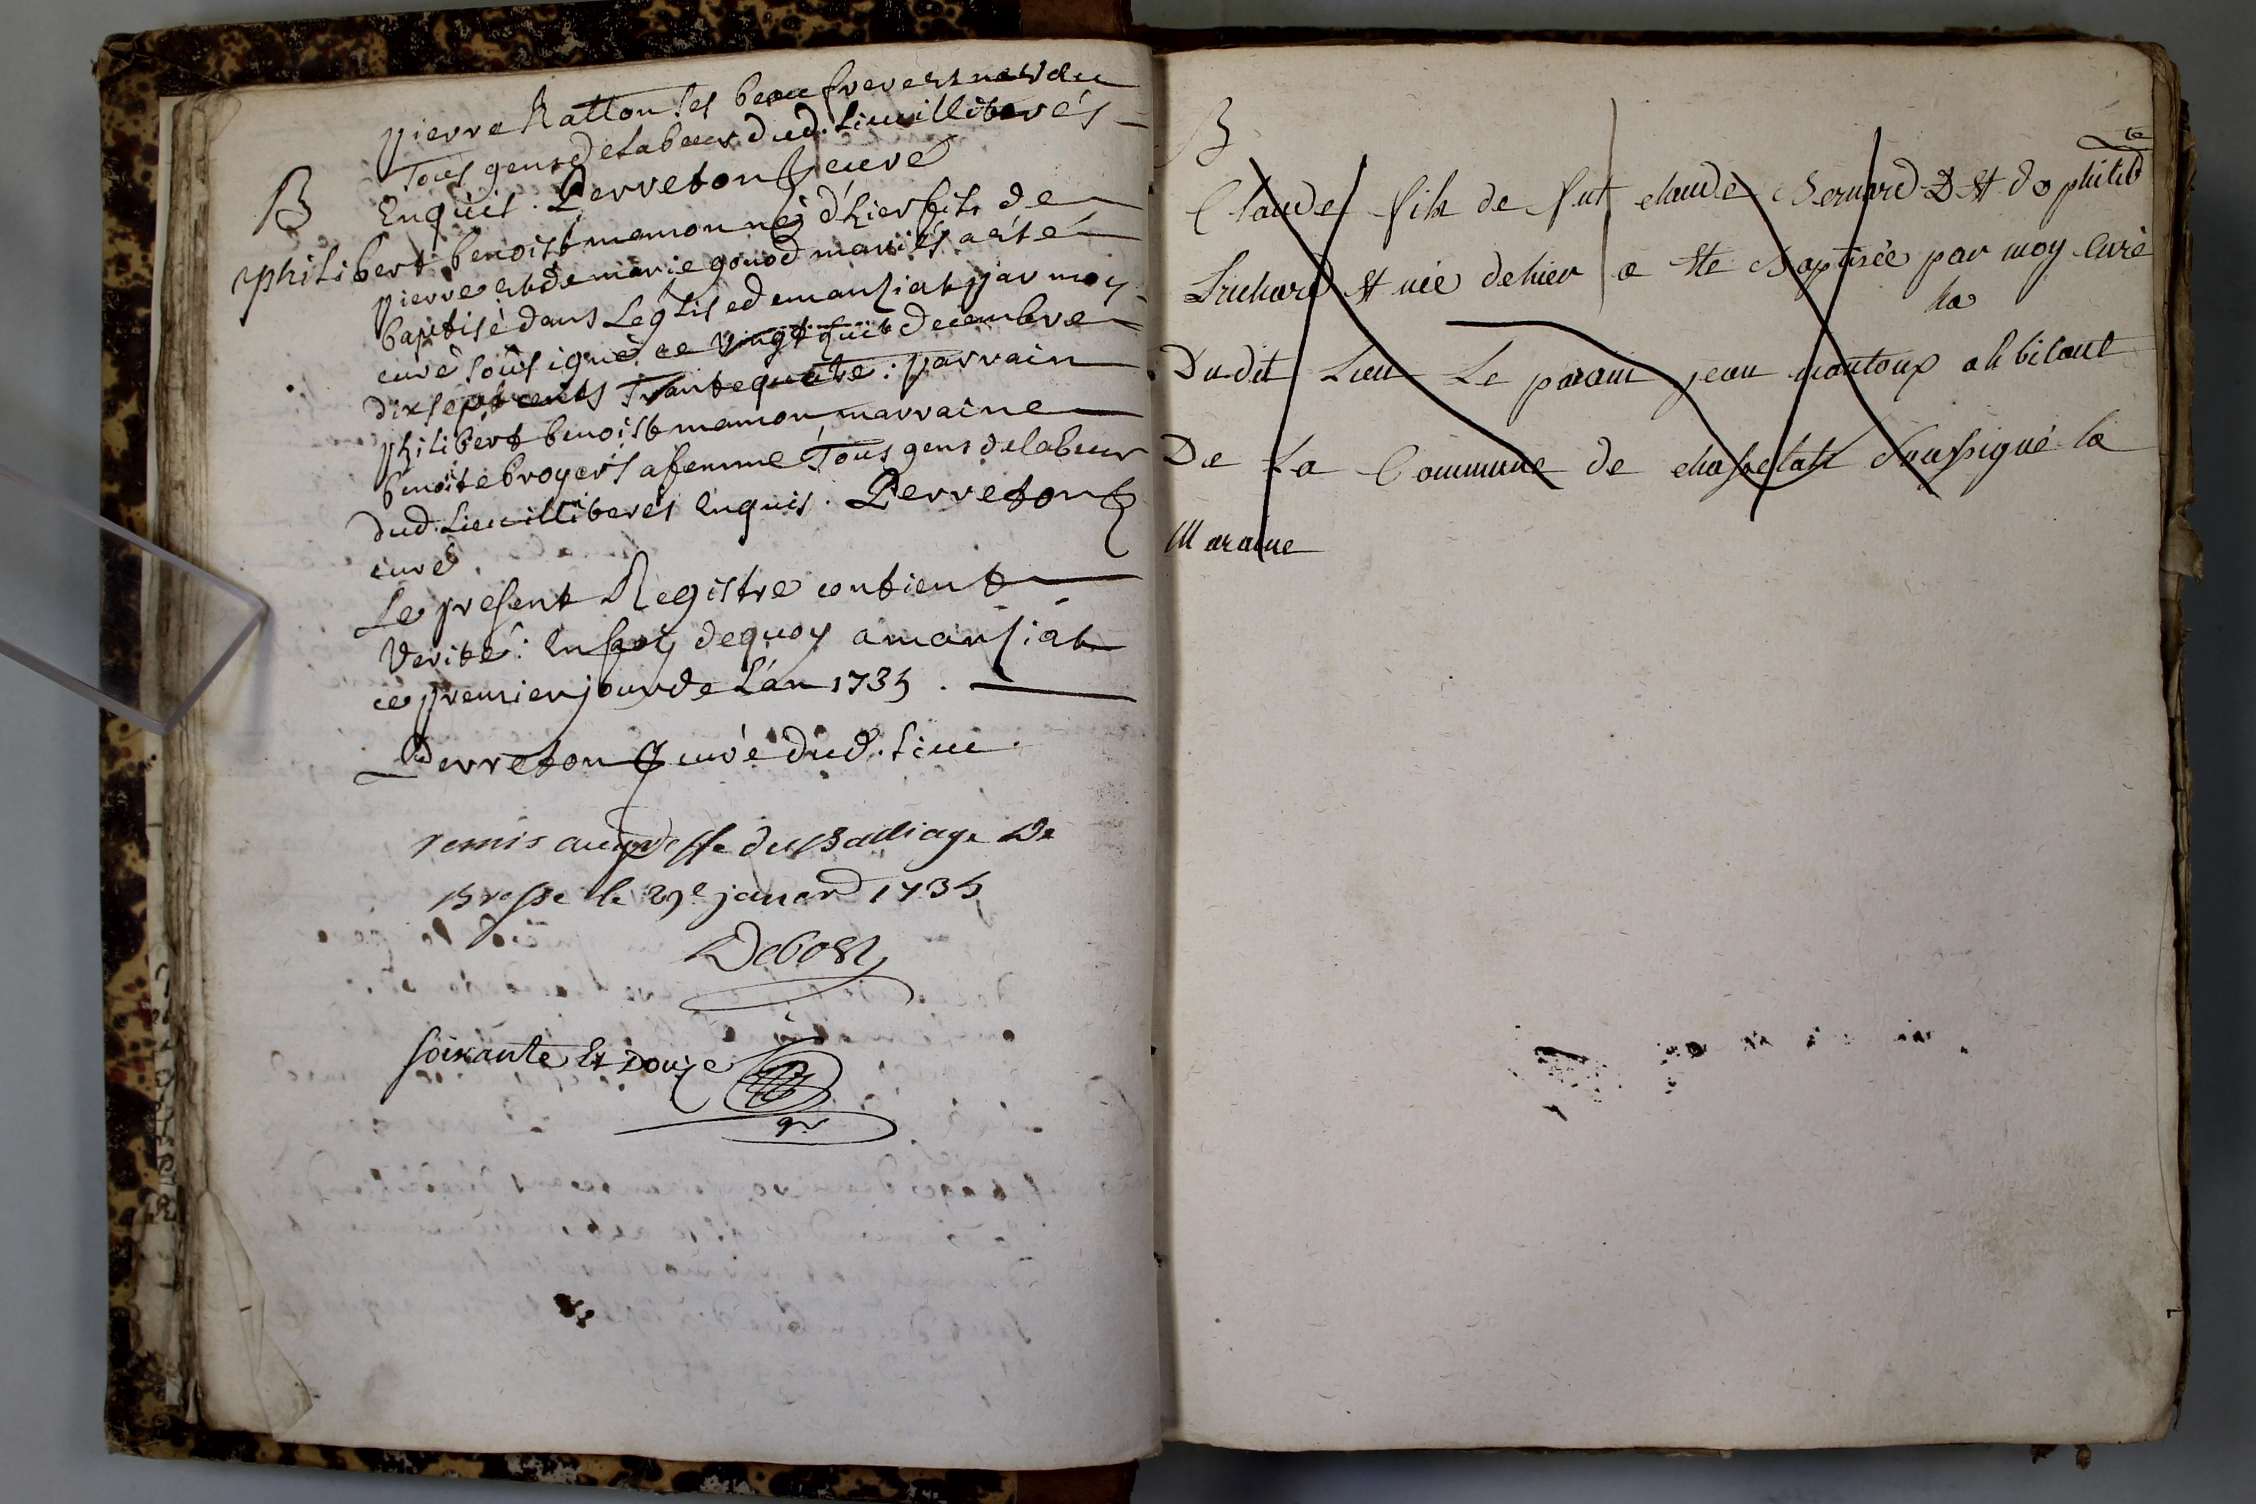 pierre Ratton ses beau freres
Tous gens de labeur dud. Lieu illiterés
Enquis. Perreton curé
B
philibert benoist mamon né d'hier fils de
pierre et de marie gonod mariés a esté
baptisé dans Leglise de manziat par moy
curé sousigné ce vingt huit decembre
dix sept cents Trante quatre: parrain
philibert benoist mamon, marraine
benoite broyer sa femme Tous gens de labeur
dud. Lieu illiberés enquis. Perreton
curé.
Le present Registre contient
Verité: en foy de quoy a manziat
ce premier jour de L'an 1735.
Perreton curé dud. Lieu.
remis au greffe du Balliage De
Bresse le 29e janer 1735
Debost
soixante Et douze
B
Claude fils de fut claude Bernard Et de philib te
Et née dehier a ete Baptisée par moy Curé
Du dit Lieu Le parain jean montoux ah bitant
ha
De La Commune de Soussigné la
Maraine